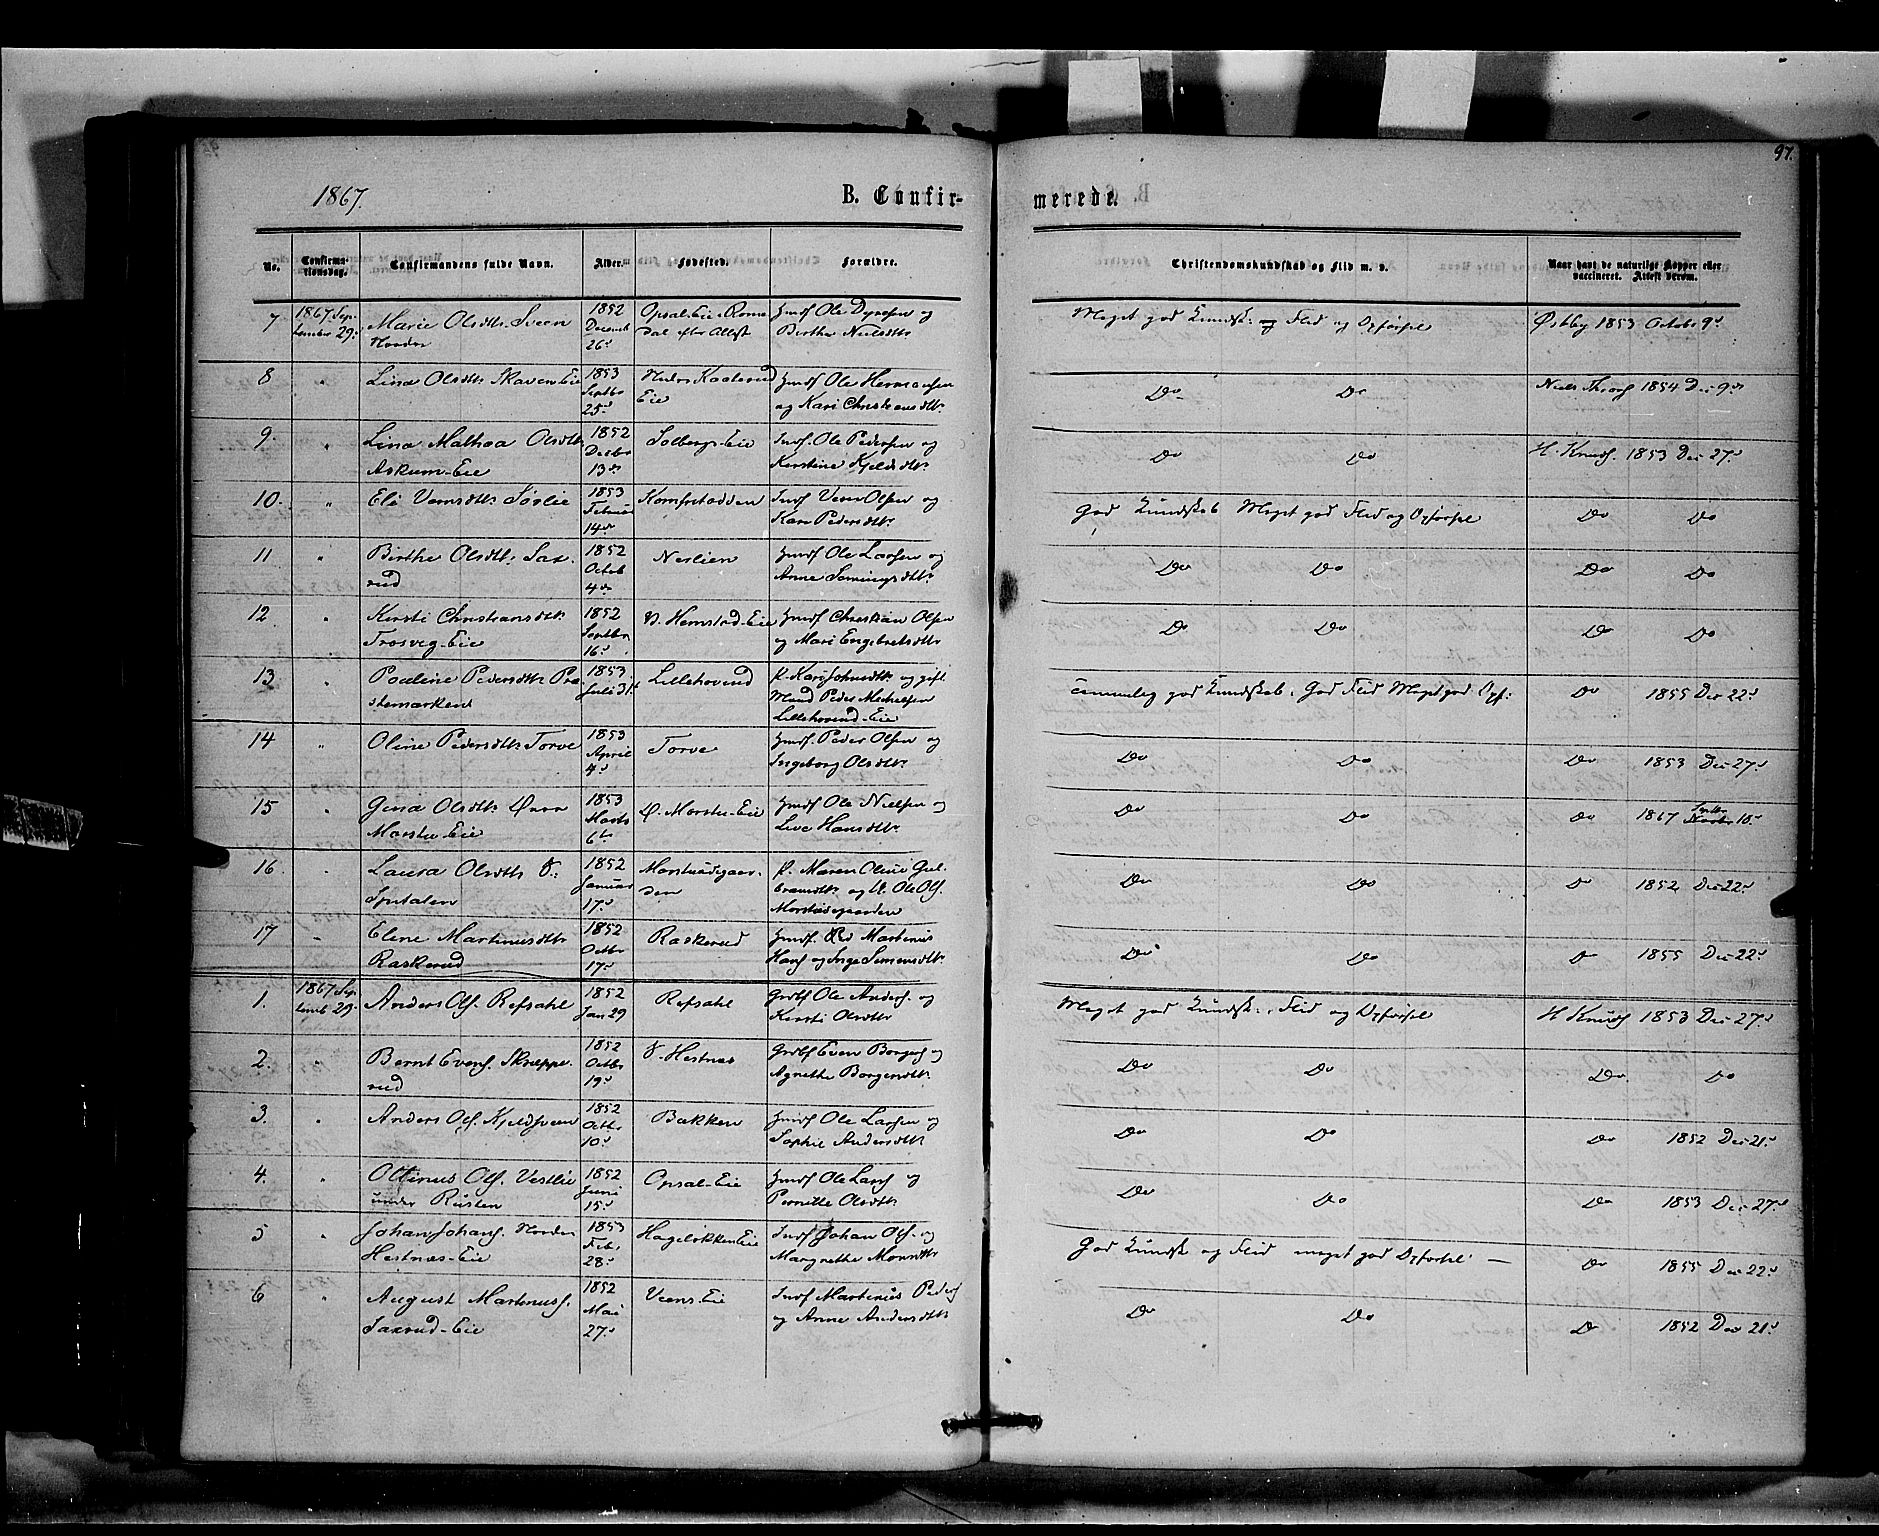 97.
1867.
B. Confir-
merede.
No. Confirma-tionsdag. Confirmandens fulde Navn. Alder. Fødested. Forældre. Christendomskundskab og Flid m. v. Naar havt de naturlige Kopper eller vaccineret. Attest derom.
7 1867 September 29. Marie Olsdtr. Sveen Nordre 1852 Decemb 26 Opsal-Eie Romedal efter Attest Ole Dyresen og Berthe Nielsdtr. Meget god Kundsk. og Flid og Opførsel Østby 1853 October 9
8 " Lina Olsdtr. Skaven-Eie 1853 Septbr 25 Kaalerud Eie Ole Hermansen og Kari Christiansdtr. Do Do 1854 Dec 9
9 " Lina Mathea Olsdtr. Askum-Eie 1852 Decbr 13 Solbergs-Eie Inds Ole Pedersen og Kerstine Kjeldsdtr. Do Do H. Knuds. 1853 Dec 27
10 " Eli Vernsdtr. Sørlie 1853 Februar 14 Komfretodden Inds Olsen og Kari Pedersdtr. God Kundskab Meget god Flid og Opførsel Do Do
11 " Birthe Olsdtr. Saxrud 1852 Octob 4 Neslien Ole Larsen og Anne Semingsdtr. Do Do Do Do
12 " Kersti Christiansdtr. Trosvig-Eie 1852 Septbr 16 V. Hemstad-Eie Christian Olsen og Mari Engebretsdtr. Do Do Do Do
13 " Pauline Pedersdtr. Præstemarken 1853 Juli 31 Lillehovend P. Kari Johnsdtr. og gift Mand Peder Michelsen Lillehovend-Eie Temmelig god Kundskab. God Flid Meget god Opf. Do 1855 Dec 22
14 " Oline Pedersdtr. Torve 1853 April 4 Torve Peder Olsen og Ingeborg Olsdtr. Do Do Do 1853 Dec 27
15 " Gina Olsdtr. Øvre Morstu-Eie 1853 Marts 6 Ø. Morstu-Eie Ole Nielsen og Live Hansdtr. Do Do Do 1867 Septbr 10
16 " Laura Olsdtr. V. Spitalen 1852 Januar 17 Morstuadgaarden P. Maren Oline Gulbrandsdtr. og U. Ole Ols. Morstadgaarden Do Do Do 1852 Dec 22
17 " Elene Martinusdtr. Raskerud 1852 Octbr 17 Raskerud Martinus Hans. og Inge Simensdtr. Do Do Do 1855 Dec 22
1. 1867 Septemb 29. Anders Ols. Refsahl 1852 Jan 29 Refsahl Ole Anders. og Kersti Olsdtr. Meget god Kundsk., Flid og Opførsel H Knuds 1853 Dec 27
2. " Bernt Evens. Skrepperud 1852 Octbr 19 V. Hestnæs Even Borgers og Agnethe Borgersdtr. Do Do Do Do
3. " Anders Ols. Kjeldsveen 1852 Octbr 10 Bakken Ole Larsen og Sophie Andersdtr. Do Do Do 1852 Dec 21
4. " Ottinus Ols. Vestlie under Rusten 1852 Juni 15 Opsal-Eie Ole Lars og Pernille Olsdtr. Do Do Do 1853 Dec 27
5 " Johan Johans. Nordre Hestnæs-Eie 1853 Feb. 28 Hagelokken Eie Inds Johan Ols. og Margrethe Monsdtr. God Kundsk og Flid meget god Opførsel — Do 1855 Dec 22
6 " August Martinuss. Saxrud-Eie 1852 Mai 27 Veens-Eie Inds Martinus Peders og Anne Andersdtr. Do Do Do 1852 Dec 21